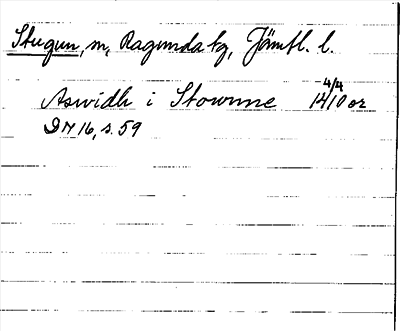 Stugun, sn, Ragunda tg, Jämtl. l.
Aswidh i Stowune 4/4 1410 or
DN 16, s. 59